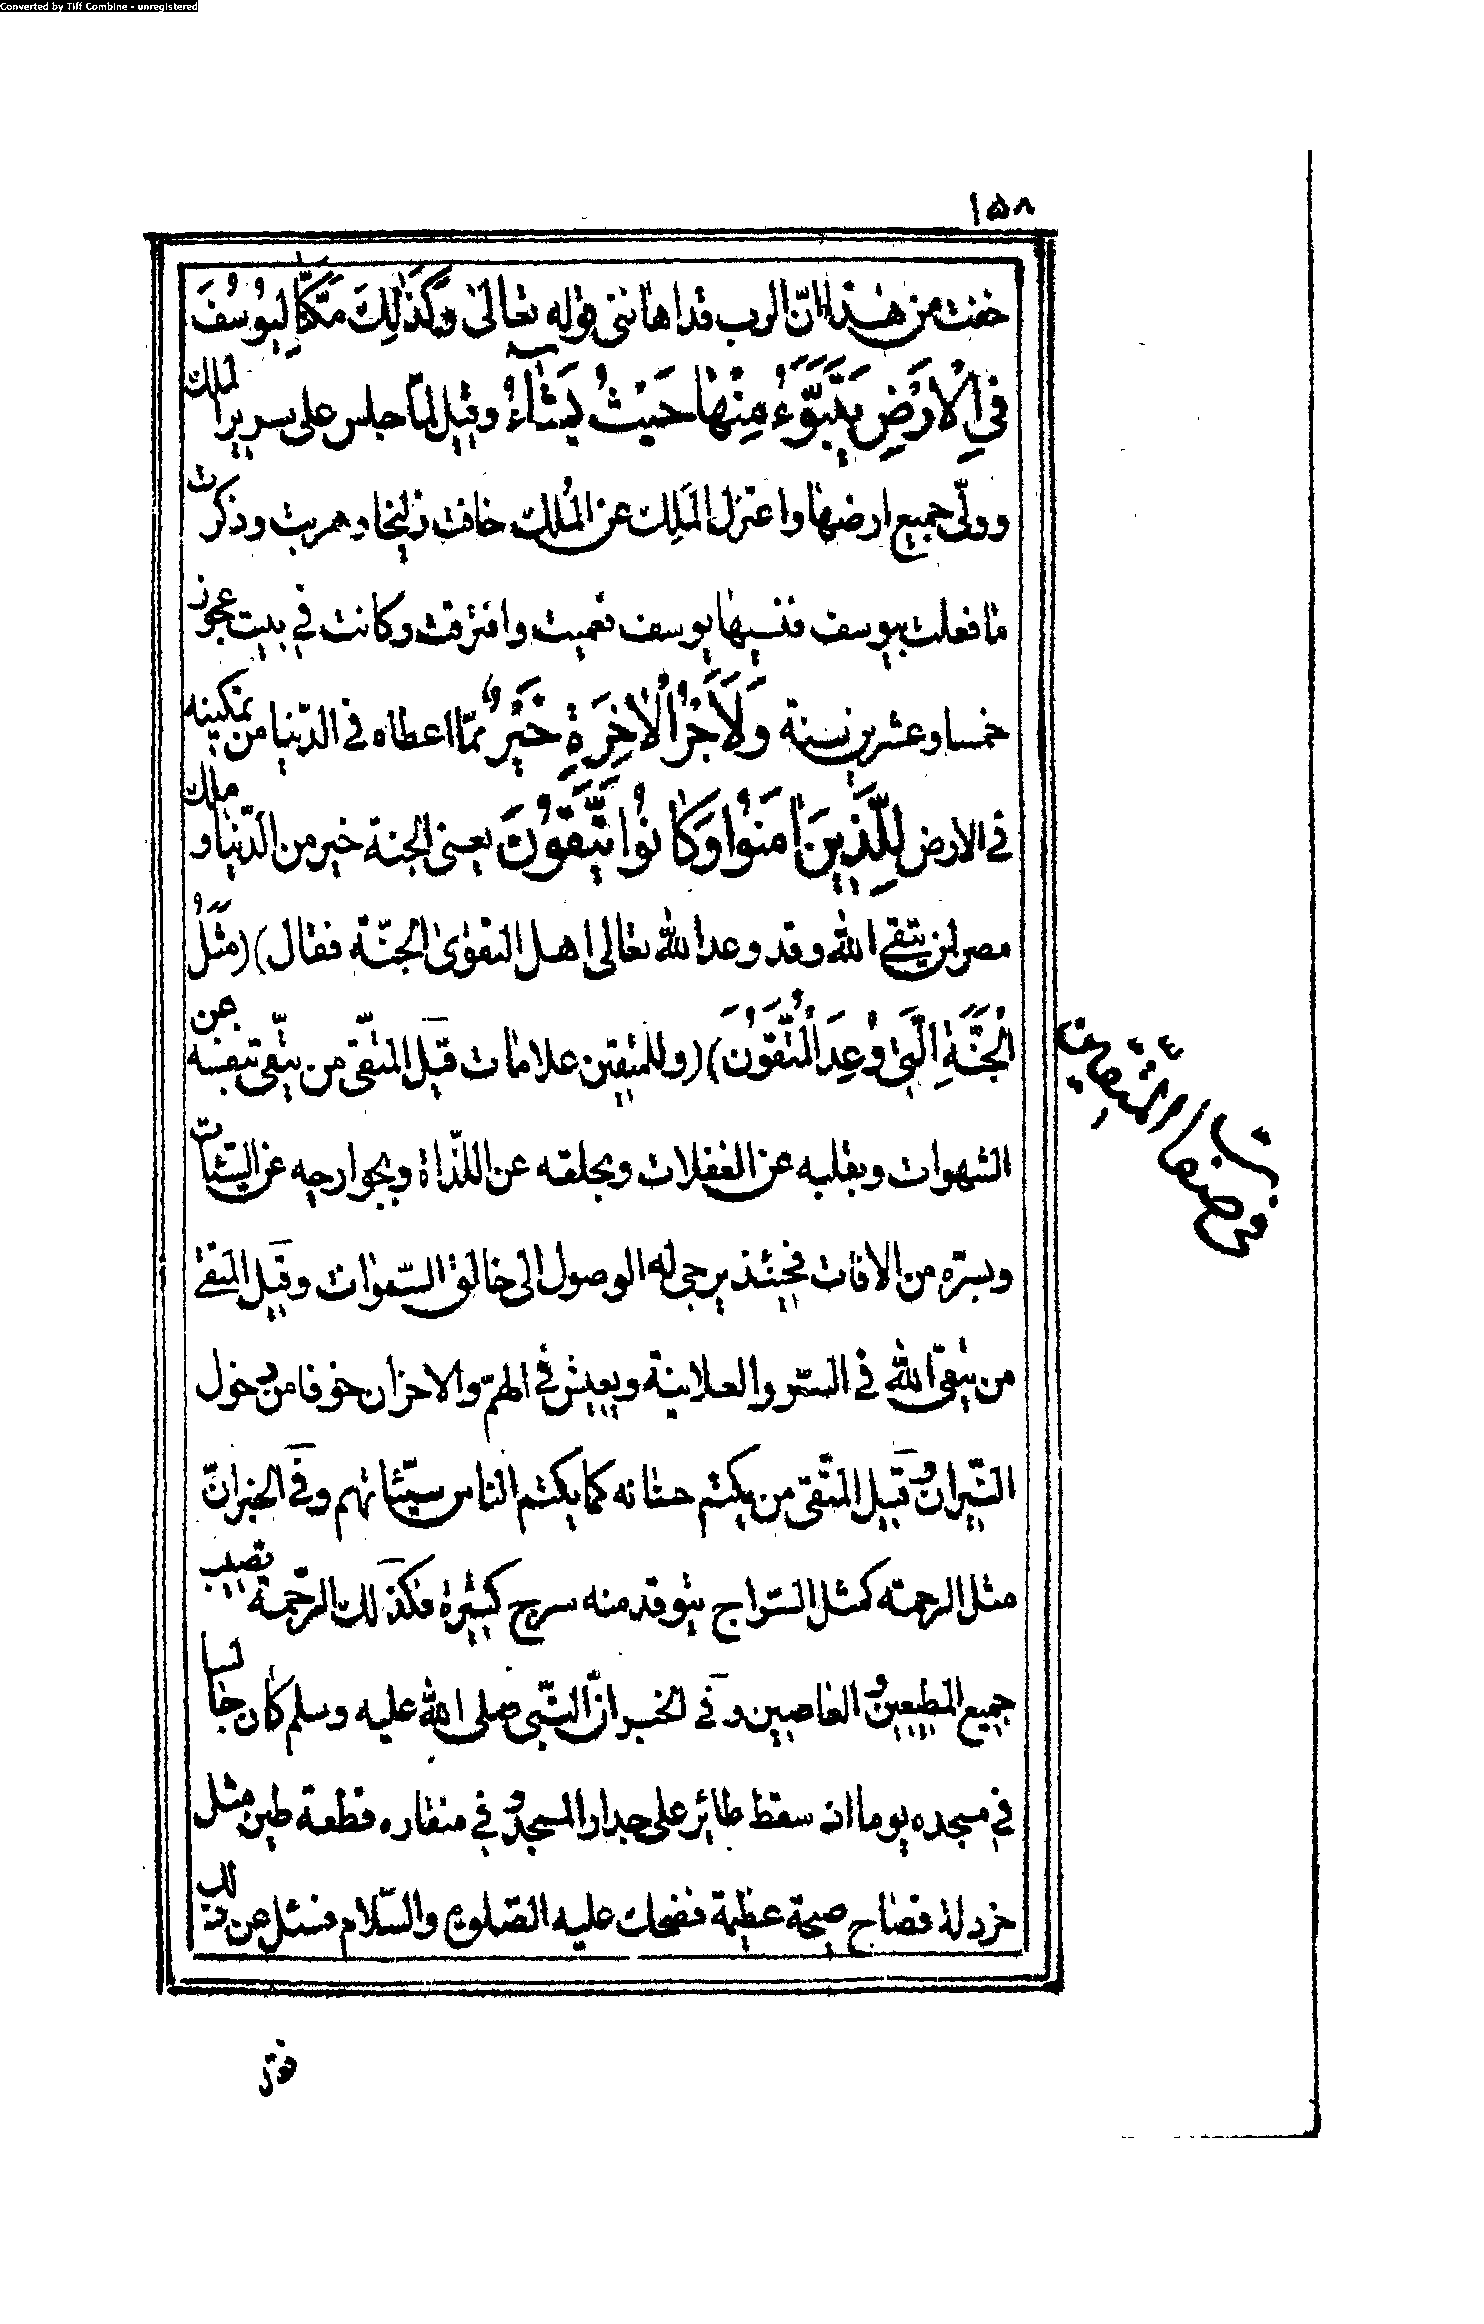 Converted by Tiff Combine - unregistered
١٥٨
خفت من هذا انّ الرب قد اهاننى قوله تعالىٰ وَكَذٰلِكَ مَكَّنَّا لِيُوسُفَ
فِى الْاَرْضِ يَتَبَوَّءُ مِنْهٰا حَيْثُ يَشٰاءُ وقيل لمّا جلس على سرير الملك
وولّى جميع ارضها واعتزل المَلِك عن المُلك خافت زليخا وهربت وذكرت
ما فعلت بيوسف فنسيها يوسف فعميت وافترقت وكانت فى بيت عجوز
خمسا وعشرين سنة وَلَاَجْرُ الْاٰخِرَةِ خَيْرٌ ممّا اعطاه فى الدّنيا من تمكينه
فى الارض لِلَّذِينَ اٰمَنُوا وَكٰانُوا يَتَّقُونَ يعنى الجنة خير من الدّنيا وملك
مصر لمن يتقى الله وقد وعد الله تعالى اهل التقوىٰ الجنّة فقال) (مَثَلُ
الْجَنَّةِ الَّتِى وُعِدَ الْمُتَّقُونَ) (وللمتقين علامات قيل المتّقى من يتّقى بنفسه عن
الشهوات وبقلبه عن الغفلات وبحلقه عن اللذّاة وبجوارحه عن السّيئات
وبسرّه من الافات فحينئذ يرجى له الوصول الى خالق السّموات وقيل المتقى
من يتقى الله فى السّر والعلانية ويعيش فى الهمّ والاحزان خوفا من دخول
النّيران وقيل المتّقى من يكتم حسناته كما يكتم الناس سيّئاتهم وفى الخبر انّ
مثل الرحمة كمثل السّراج يتوقد منه سرج كثيرة فكذلك الرحّمة تصيب
جميع المطيعين والعاصين وفى الخبر انّ النّبى صلى الله عليه وسلم كان جالسا
فى مسجده يوما اذ سقط طائر على جدار المسجد وفى منقاره قطعة طين مثل
خردلة فصاح صيحة عظيمة فضحك عليه الصّلوة والسّلام فسئل عن ذلك
فى صفات المتّقين